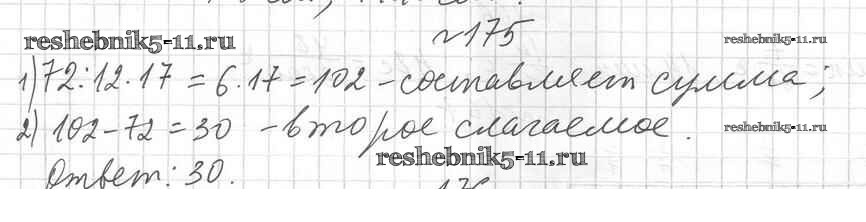 №175
reshebnik5-11.ru
reshebnik5-11.ru
1) 72:12·17 = 6·17 = 102 – составляет сумма;
2) 102 – 72 = 30 – второе слагаемое.
reshebnik5-11.ru
reshebnik5-11.ru
Ответ: 30.